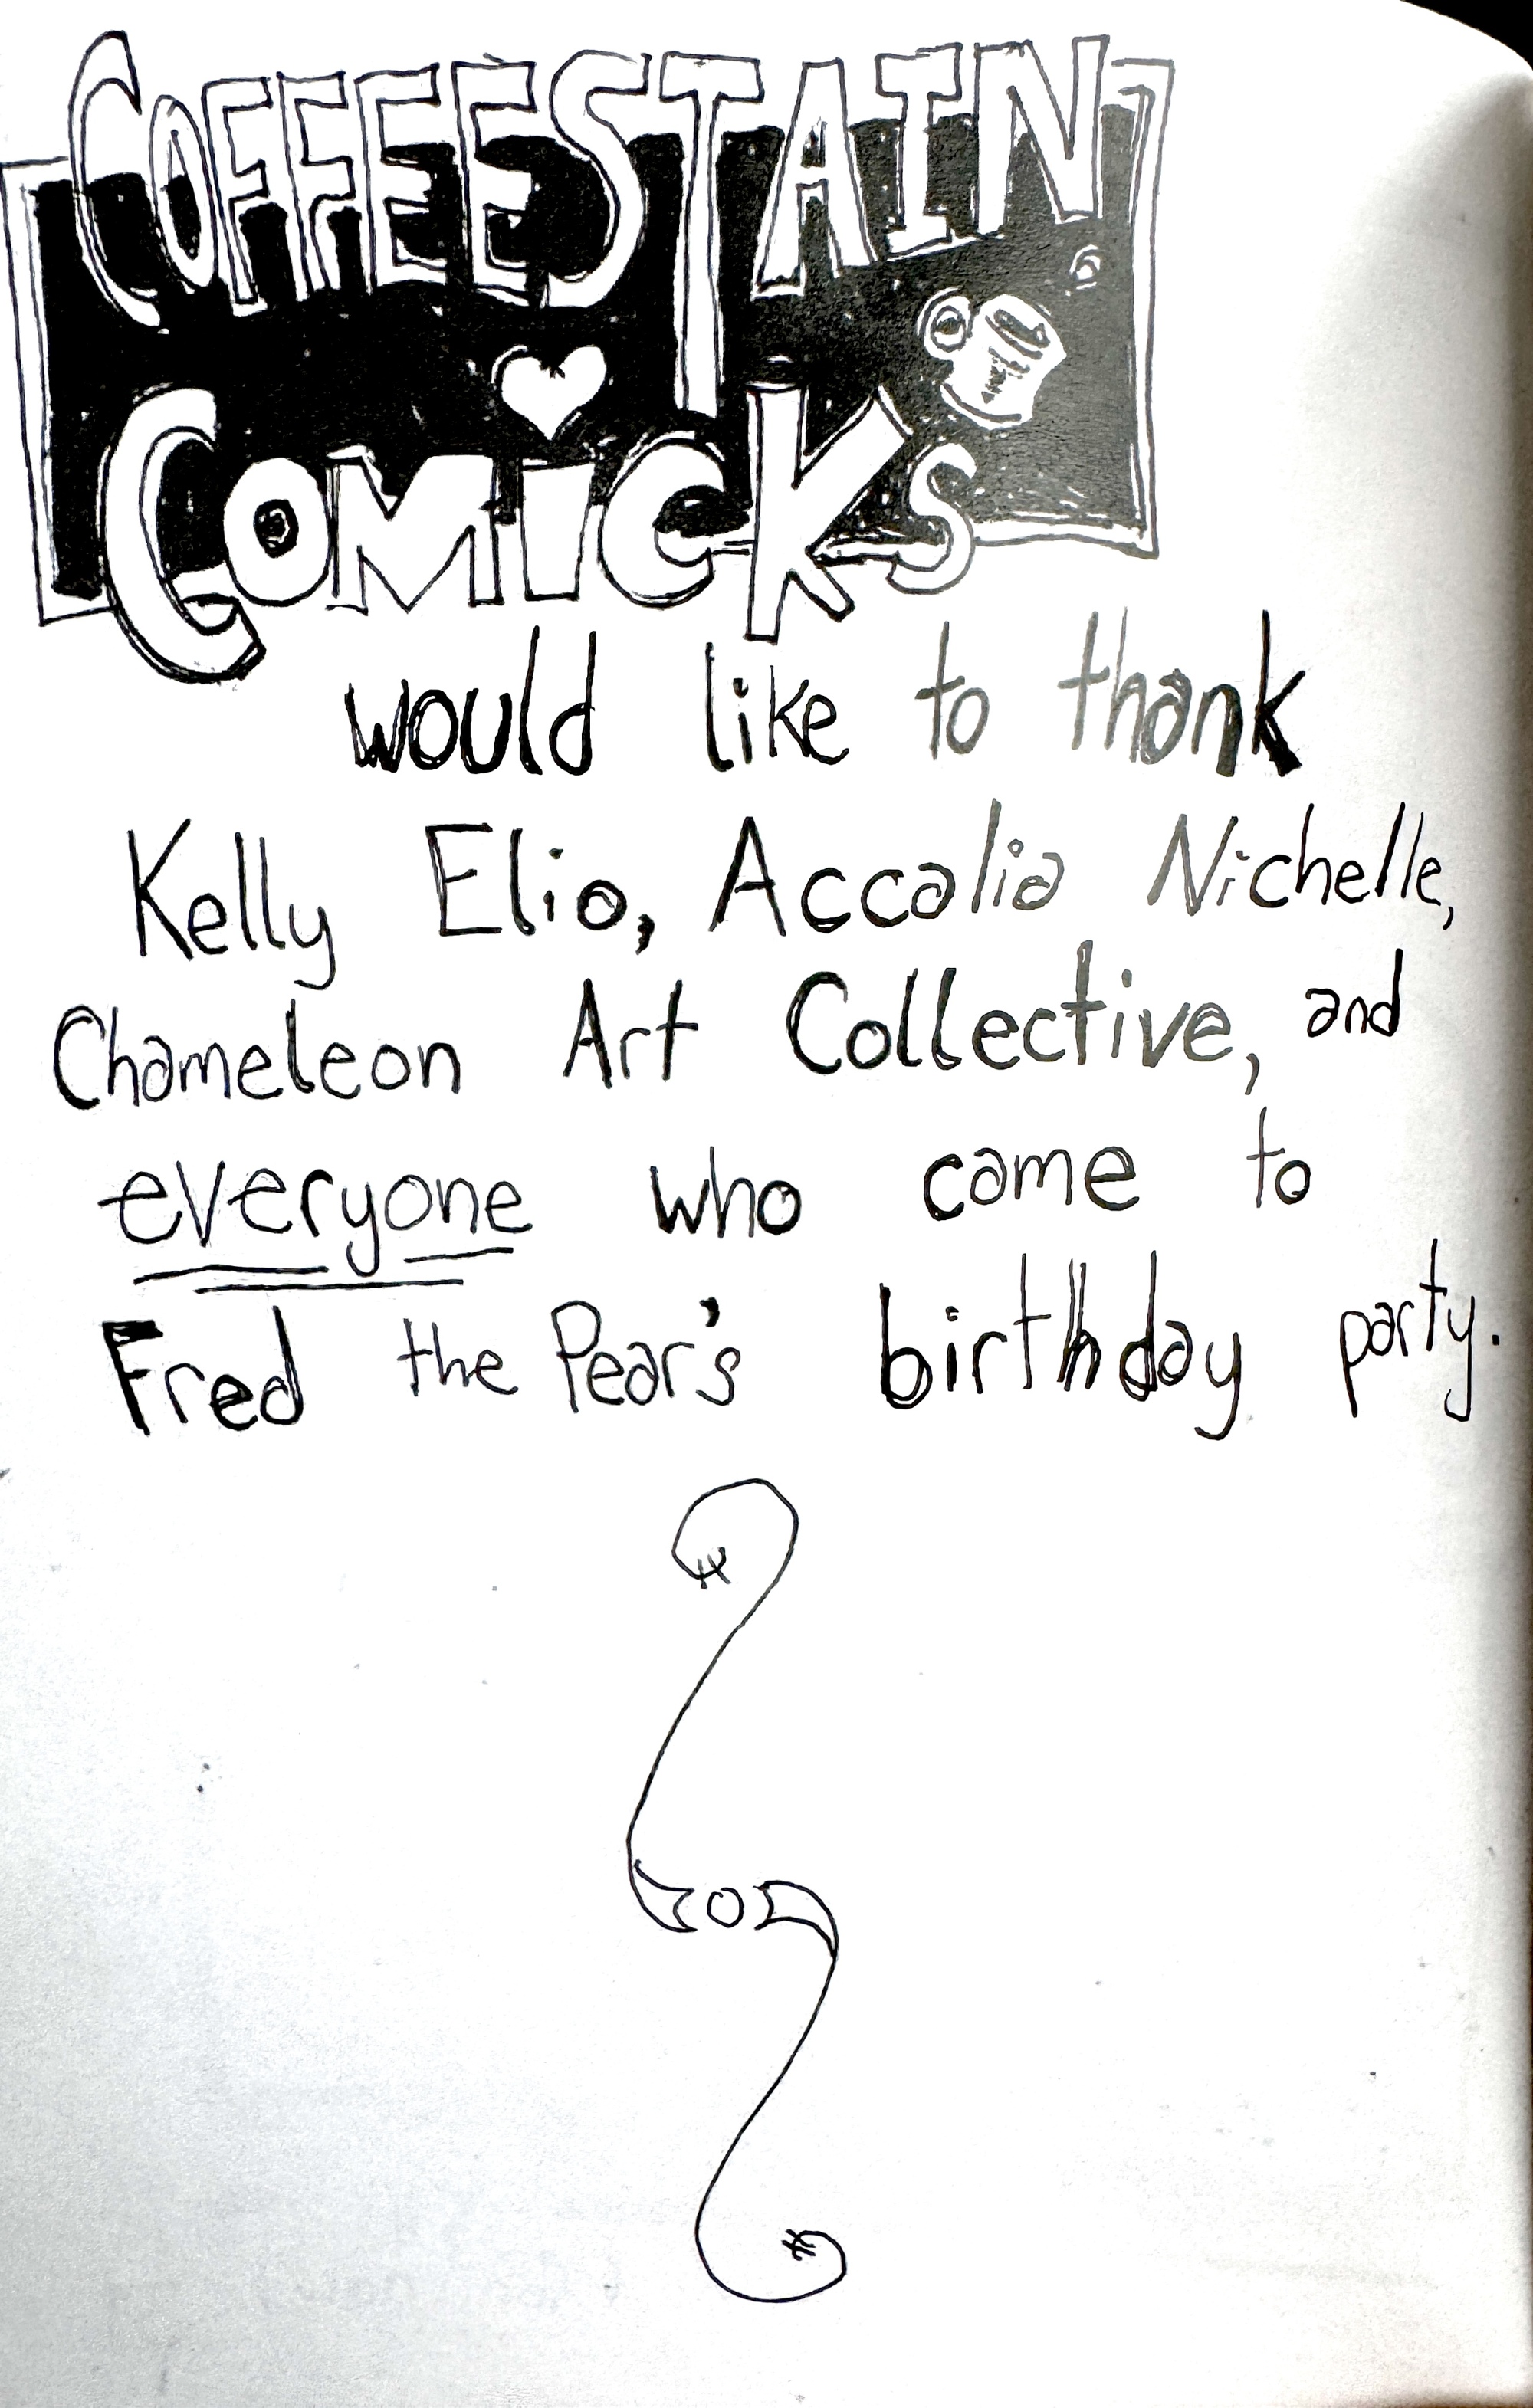 COFFEESTAIN
COMiCKS
would like to thank
Kelly Elio, Accalia Nichelle,
Chameleon Art Collective, and
everyone who came to
Fred the Pear's birthday party.